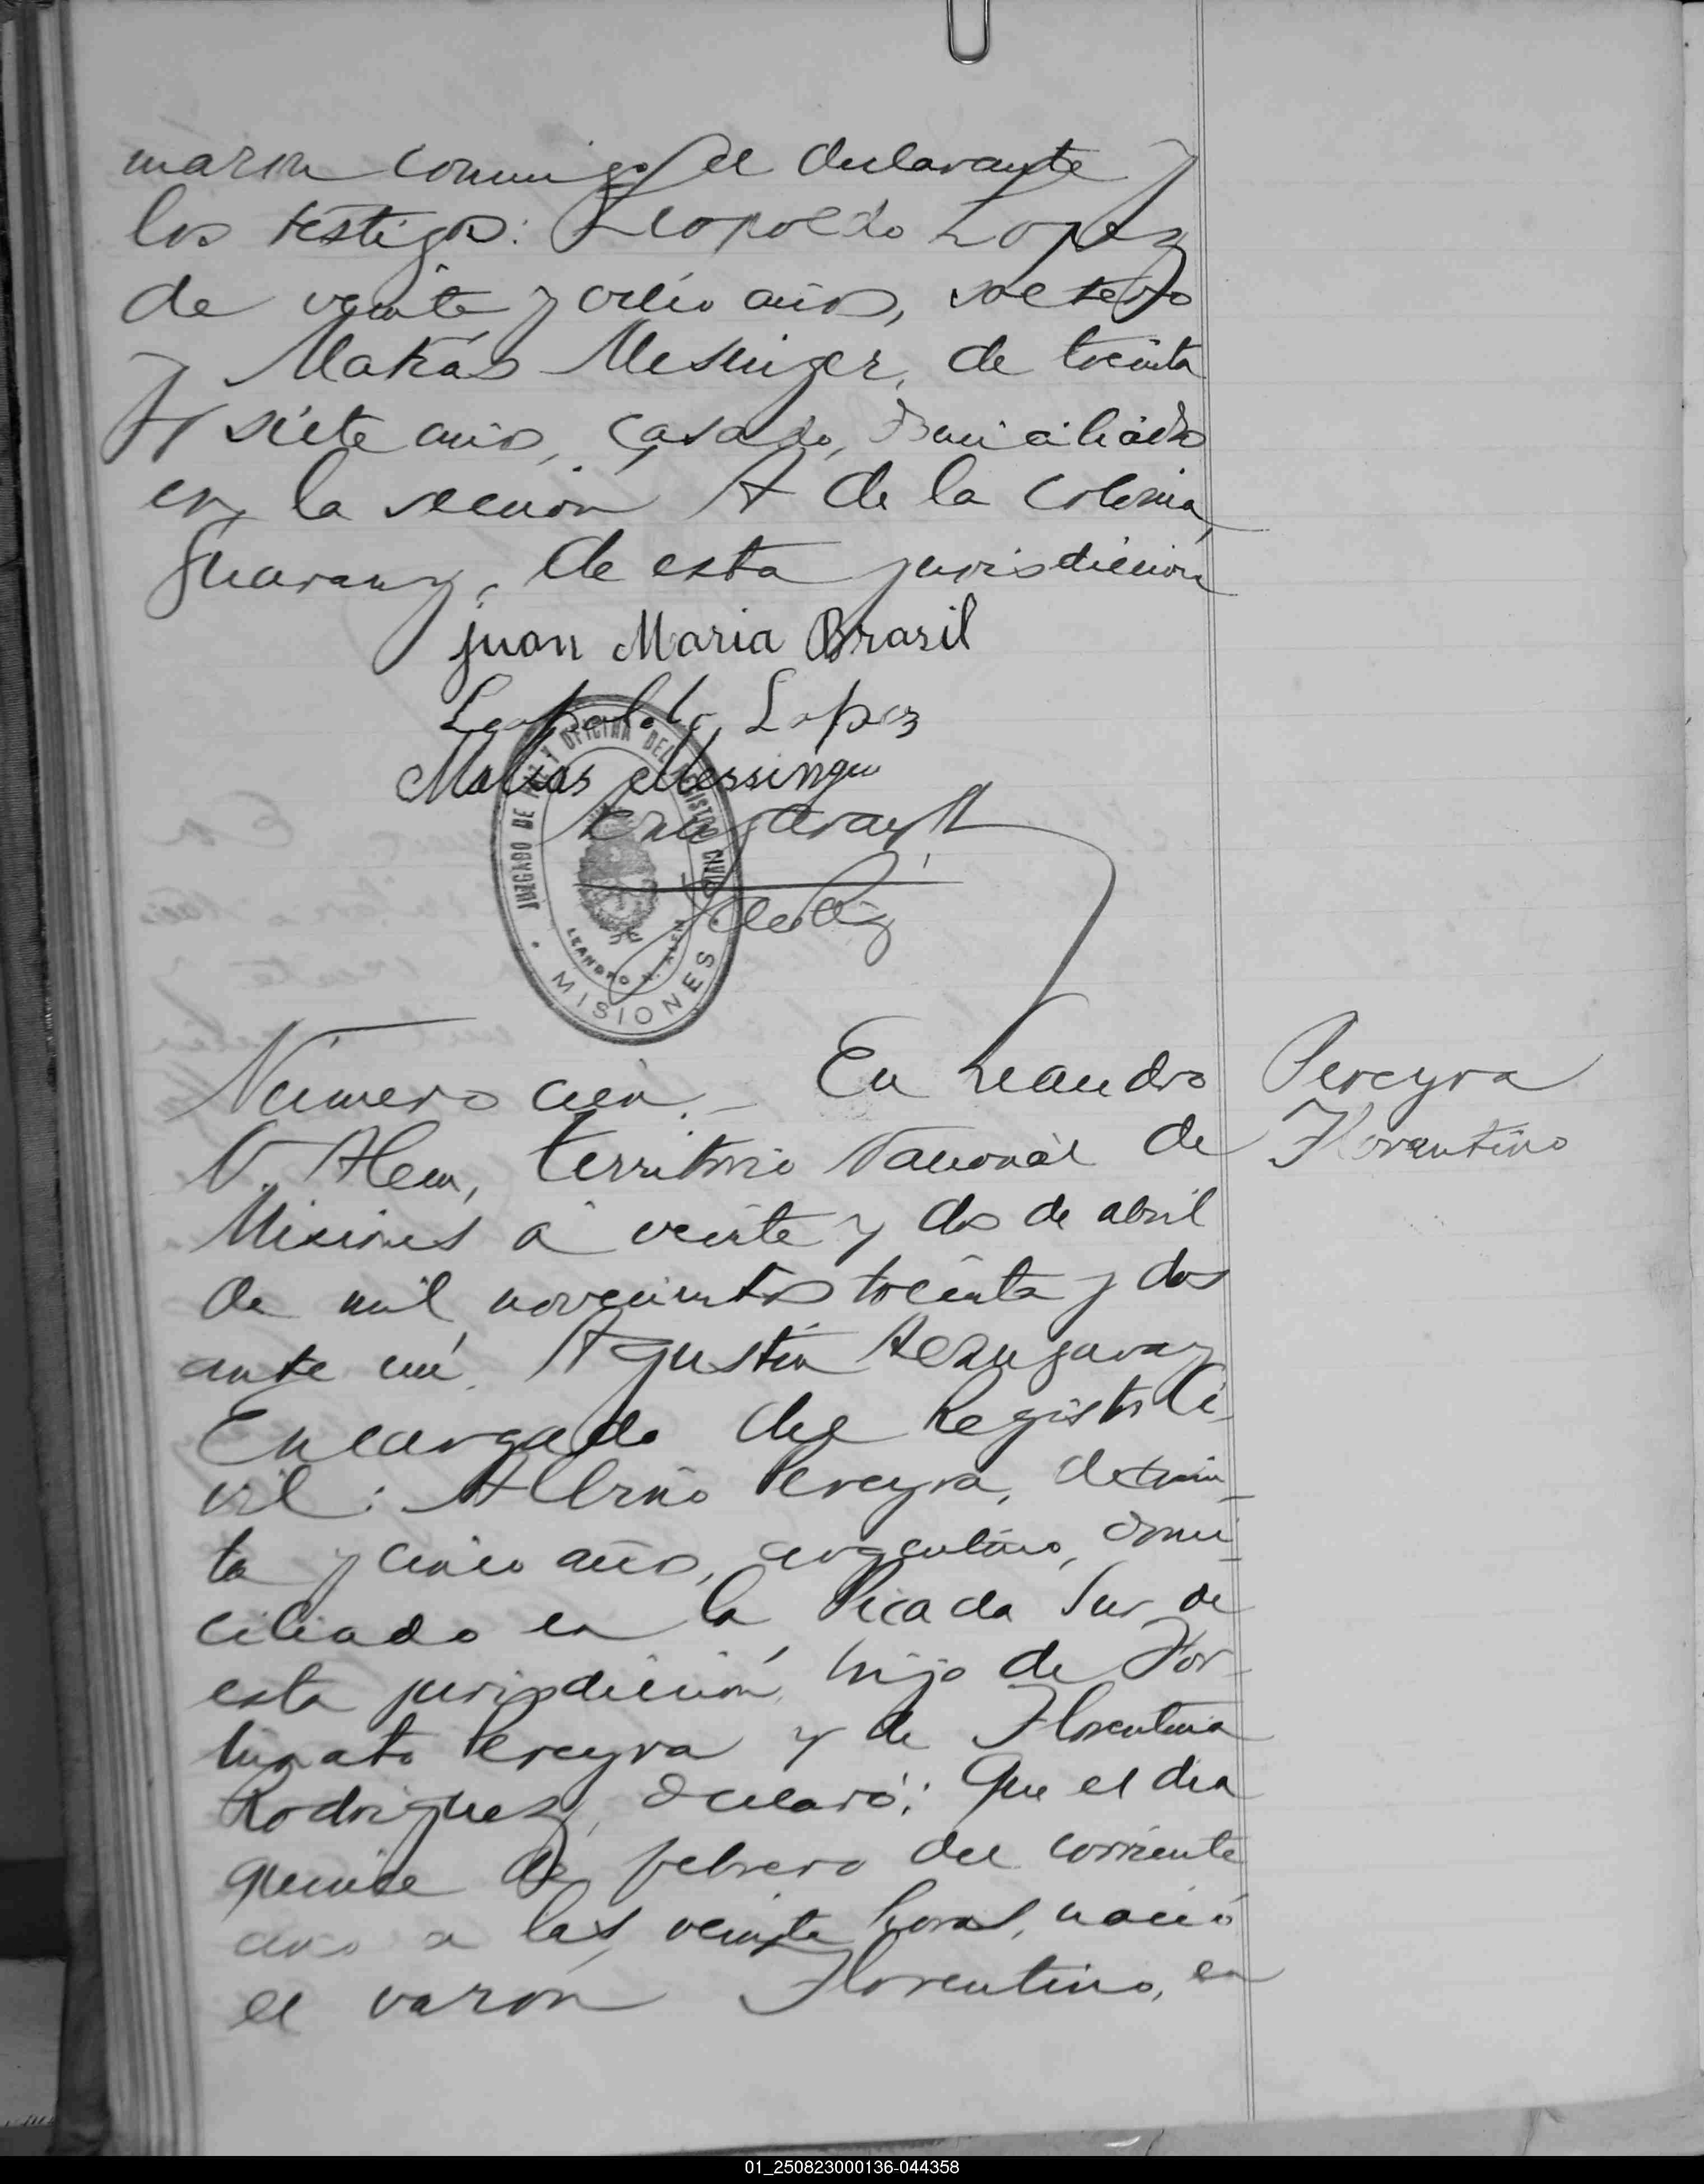 maron conmigo el declarante y
los testigos: Leopoldo Lopez
de veinte y ocho años, soltero
y Matías Mesinger, de treinta
y siete años, casado, domiciliados
en la sección A de la Colonia
Guarany, de esta jurisdicción
juan Maria Brasil
Leopoldo Lopez
Matias Messinger
JUZGADO DE PAZ Y OFICINA DEL REGISTRO CIVIL
LEANDRO N. ALEM
MISIONES
Número cien.- En Leandro
N. Alem, Territorio Nacional de
Misiones a veinte y dos de abril
de mil novecientos treinta y dos
ante mí, Agustín
Encargado del Registro Ci-
vil: Albino Pereyra, de trein-
ta y cinco años, argentino, domi-
ciliado en la Picada Sur de
esta jurisdicción, hijo de For-
tunato Pereyra y de Florentina
Rodriguez, declaró: Que el dia
quince de febrero del corriente
año a las veinte horas, nació
el varón Florentino, en
Pereyra
Florentino
01_250823000136-044358